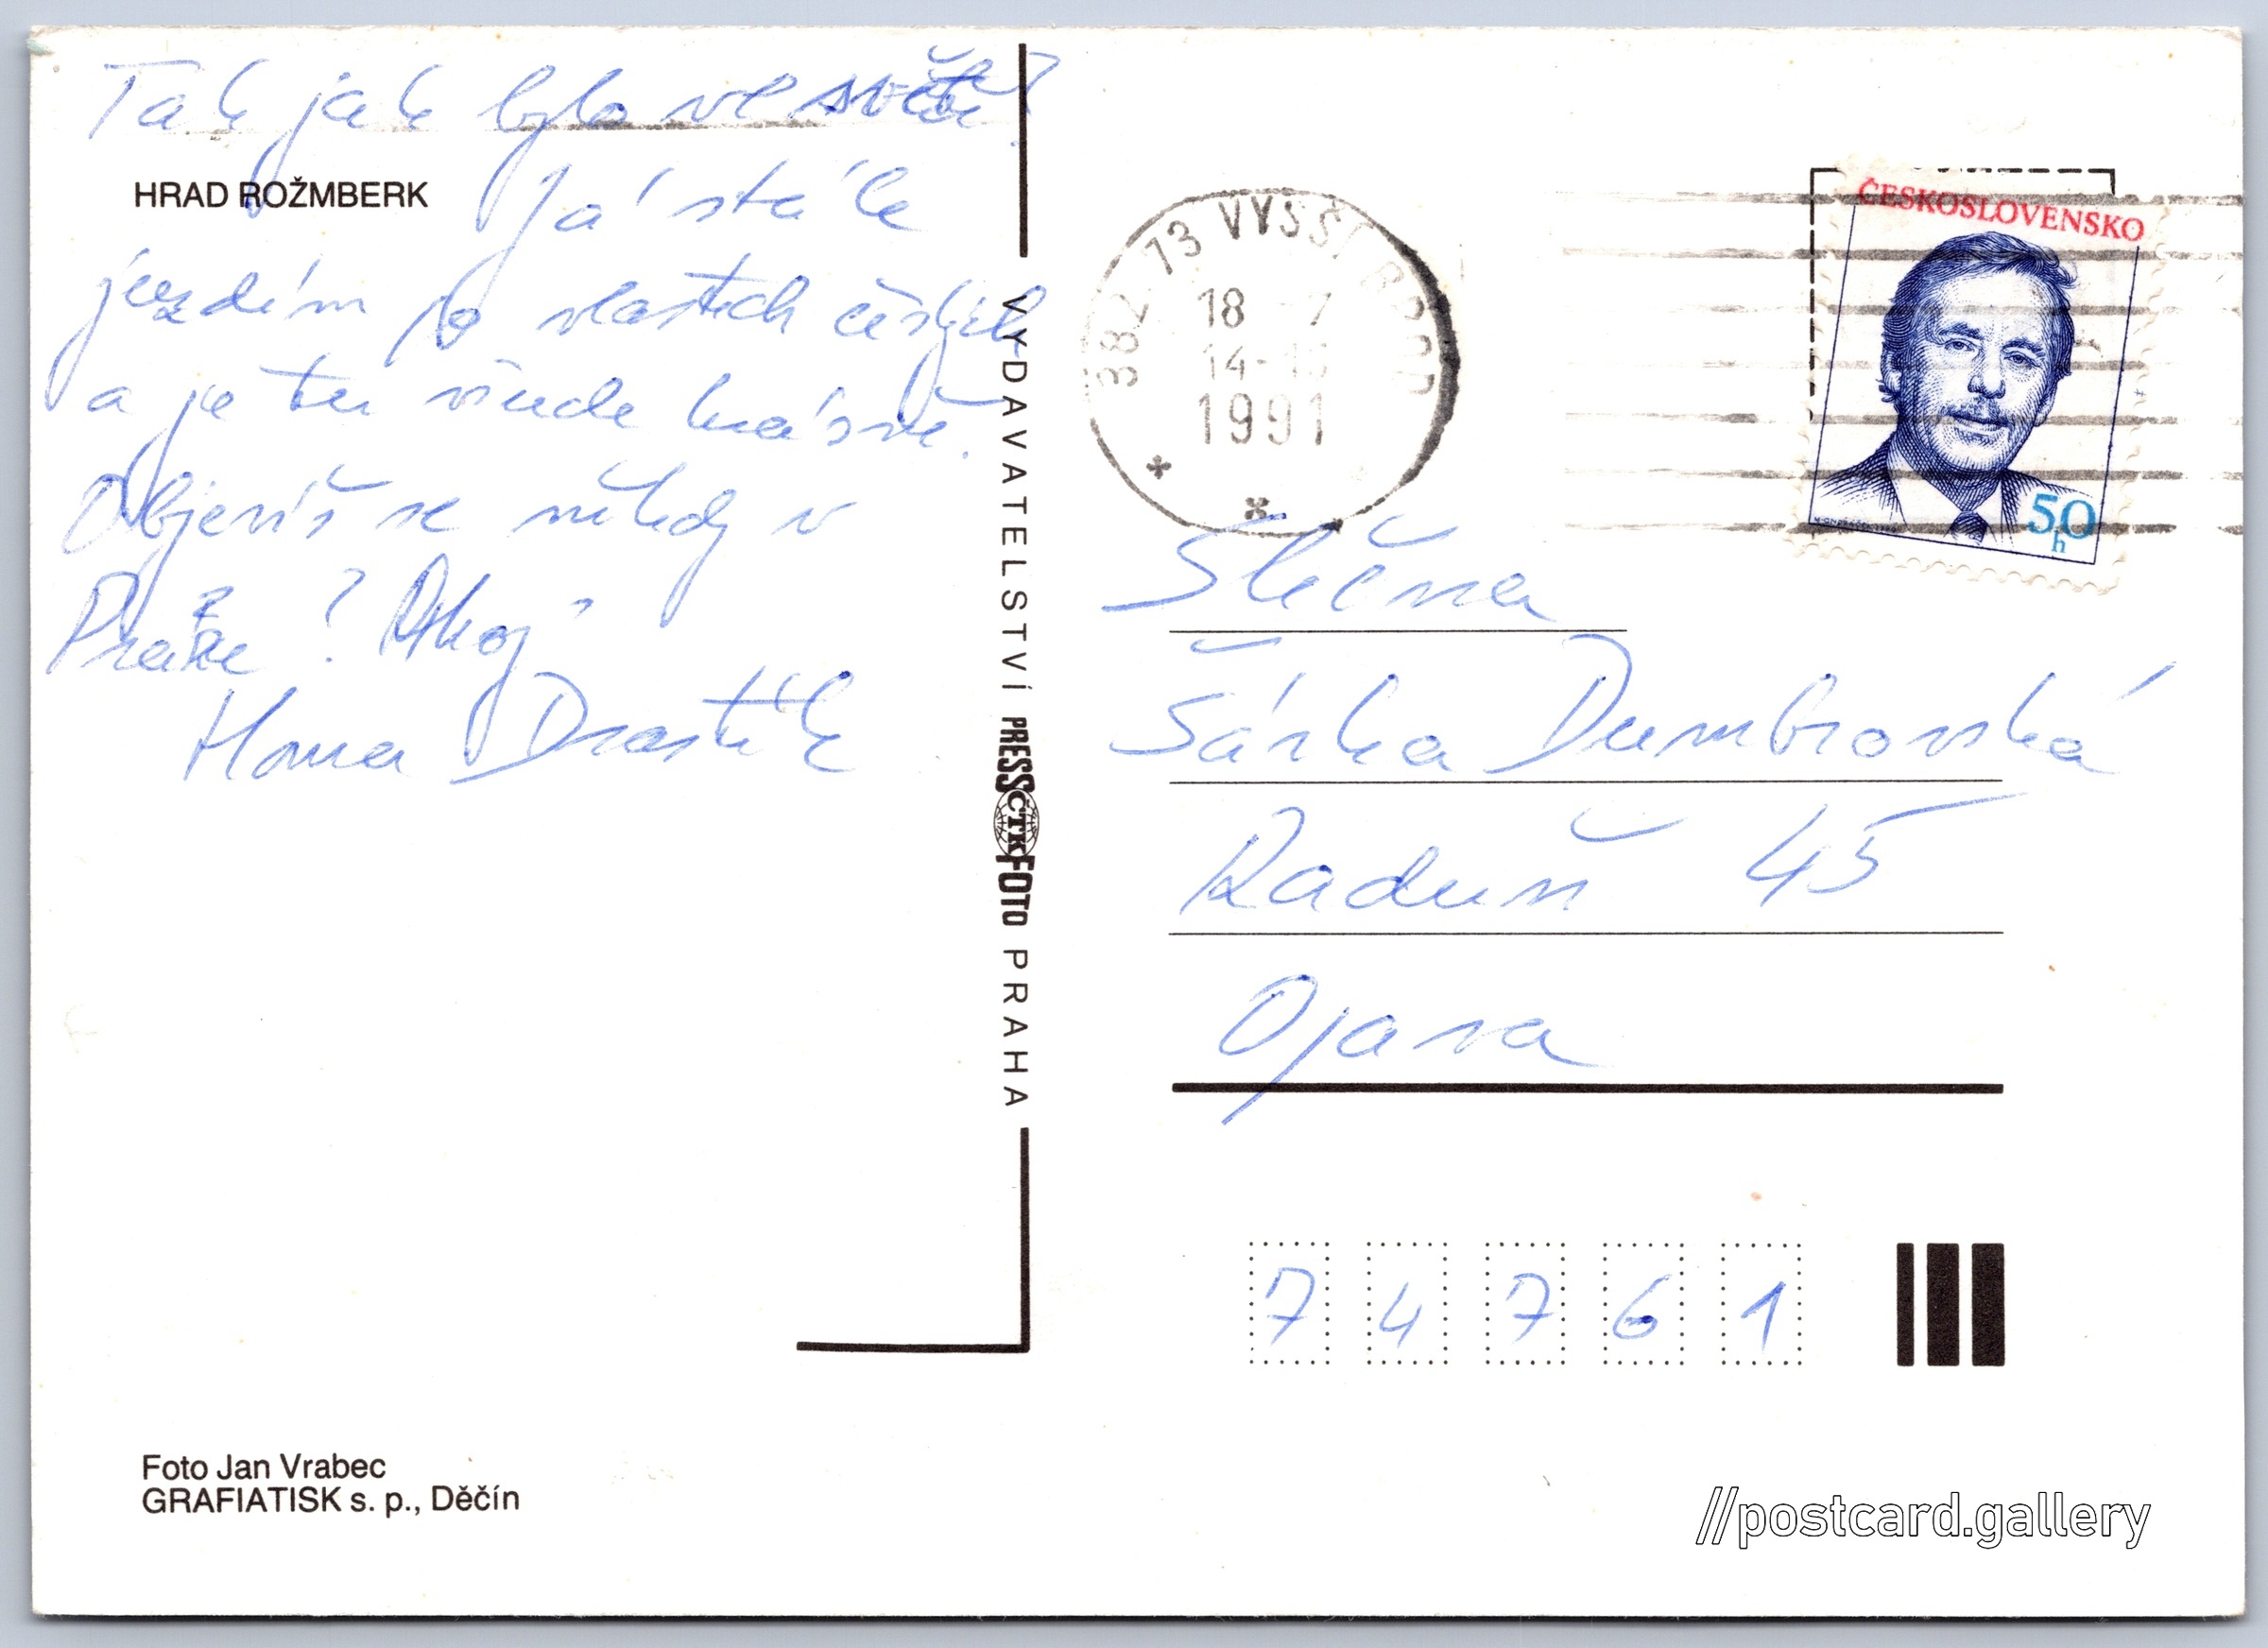 Tak jak bylo ve světě?
HRAD ROŽMBERK
Já stále
jezdím po vlastech českých
a je tu všude krásně.
Objevíš se někdy v
Praze? Ahoj
Honza Drastík
VYDAVATELSTVÍ PRESSFOTO PRAHA
ČTK
Foto Jan Vrabec
GRAFIATISK s. p., Děčín
382 73 VYŠŠÍ BROD
18 7
14-
1991
ČESKOSLOVENSKO
50
h
Slečna
Šárka Dumbrovská
Raduň 45
Opava
7 4 7 6 1
//postcard.gallery